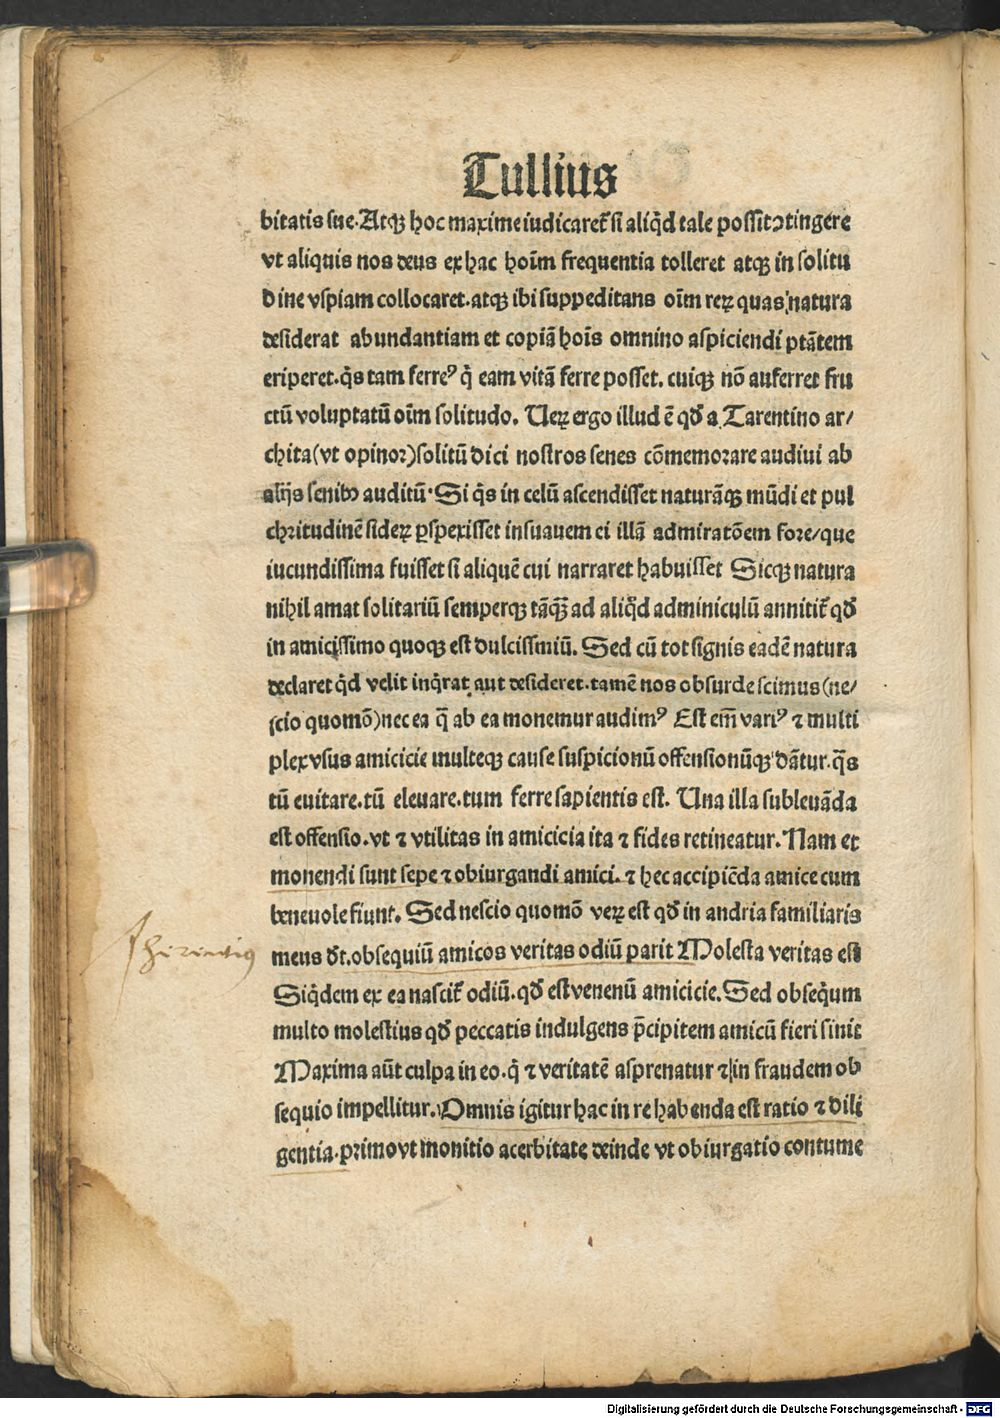 Tullius
bitatis sue. Atqꝫ hoc maxime iudicaret᷑ si aliq̇d tale possit ↄtingere
vt aliquis nos deus ex hac hoīm frequentia tolleret atqꝫ in solitu
dine vspiam collocaret. atqꝫ ibi suppeditans oīm reꝝ quas natura
desiderat abundantiam et copiā hoīs omnino aspiciendi ptātem
eriperet. q̇s tam ferreꝰ q̇ eam vitā ferre posset. cuiqꝫ nō auferret fru
ctū voluptatū oīm solitudo. Ueꝝ ergo illud ē qđ a Tarentino ar/
chita (vt opinor) solitū dici nostros senes cōmemorare audiui ab
alijs senibꝰ auditū. Si q̇s in celū ascendisset naturāqꝫ mūdi et pul
chritudinē sideꝝ ꝑspexisset insuauem ei illā admiratōem fore/que
iucundissima fuisset si aliquē cui narraret habuisset Sicqꝫ natura
nihil amat solitariū semperqꝫ tāqꝫ̄ ad aliq̇d adminiculū annitit᷑ qđ
in amicissimo quoqꝫ est dulcissmiū. Sed cū tot signis eadē natura
declaret q̇d velit inq̇rat aut desideret. tamē nos obsurdescimus (ne/
scio quomō) nec ea q̄ ab ea monemur audimꝰ Est em̄ variꝰ ⁊ multi
plex vsus amicicie multeqꝫ cause suspicionū offensionūqꝫ dātur. q̄s
tū euitare. tū eleuare. tum ferre sapientis est. Una illa subleuāda
est offensio. vt ⁊ vtilitas in amicicia ita ⁊ fides retineatur. Nam et
monendi sunt sepe ⁊ obiurgandi amici. ⁊ hec accipiēda amice cum
beneuole fiunt. Sed nescio quomō veꝝ est qđ in andria familiaris
meus đt. obsequiū amicos veritas odiū parit Molesta veritas est
Siq̇dem ex ea nascit᷑ odiū. qđ est venenū amicicie. Sed obseq̇um
multo molestius qđ peccatis indulgens p̄cipitem amicū fieri sinit
Maxima aūt culpa in eo. q̇ ⁊ veritatē asprenatur ⁊ in fraudem ob
sequio impellitur. Omnis igitur hac in re habenda est ratio ⁊ dili
gentia. primo vt monitio acerbitate deinde vt obiurgatio contume
Digitalisierung gefördert durch die Deutsche Forschungsgemeinschaft - DFG